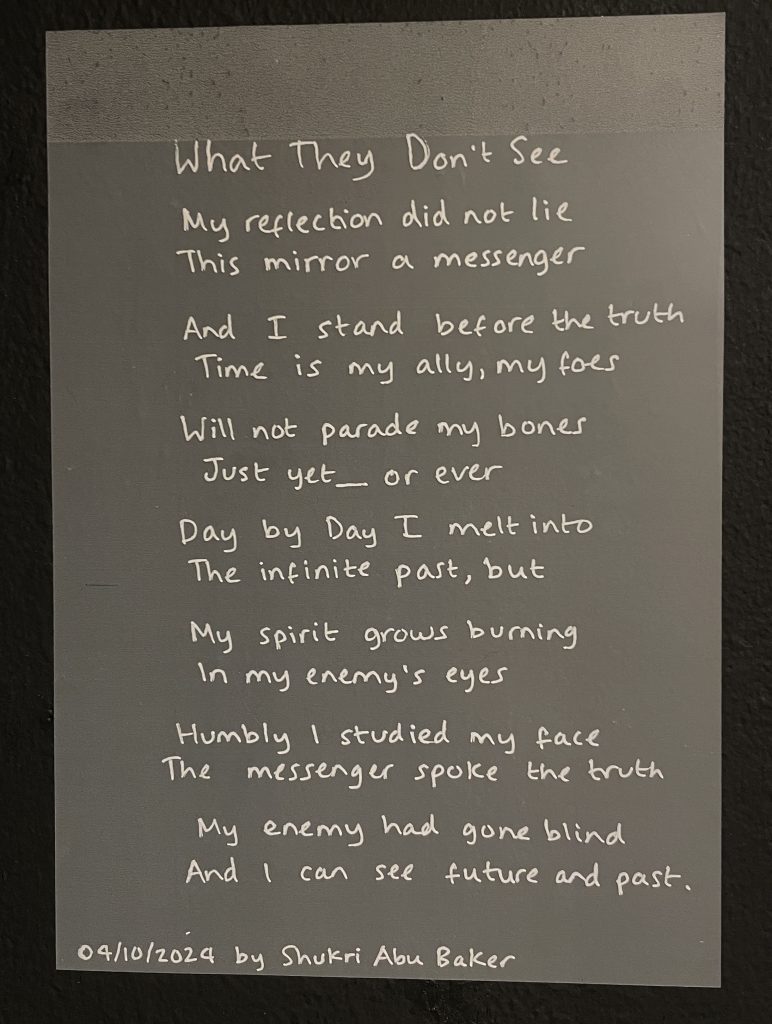 What They Don't See
My reflection did not lie
This mirror a messenger
And I stand before the truth
Time is my ally, my foes
Will not parade my bones
Just yet_ or ever
Day by Day I melt into
The infinite past, but
My spirit grows burning
In my enemy's eyes
Humbly I studied my face
The messenger spoke the truth
My enemy had gone blind
And I can see future and past.
04/10/2024 by Shukri Abu Baker